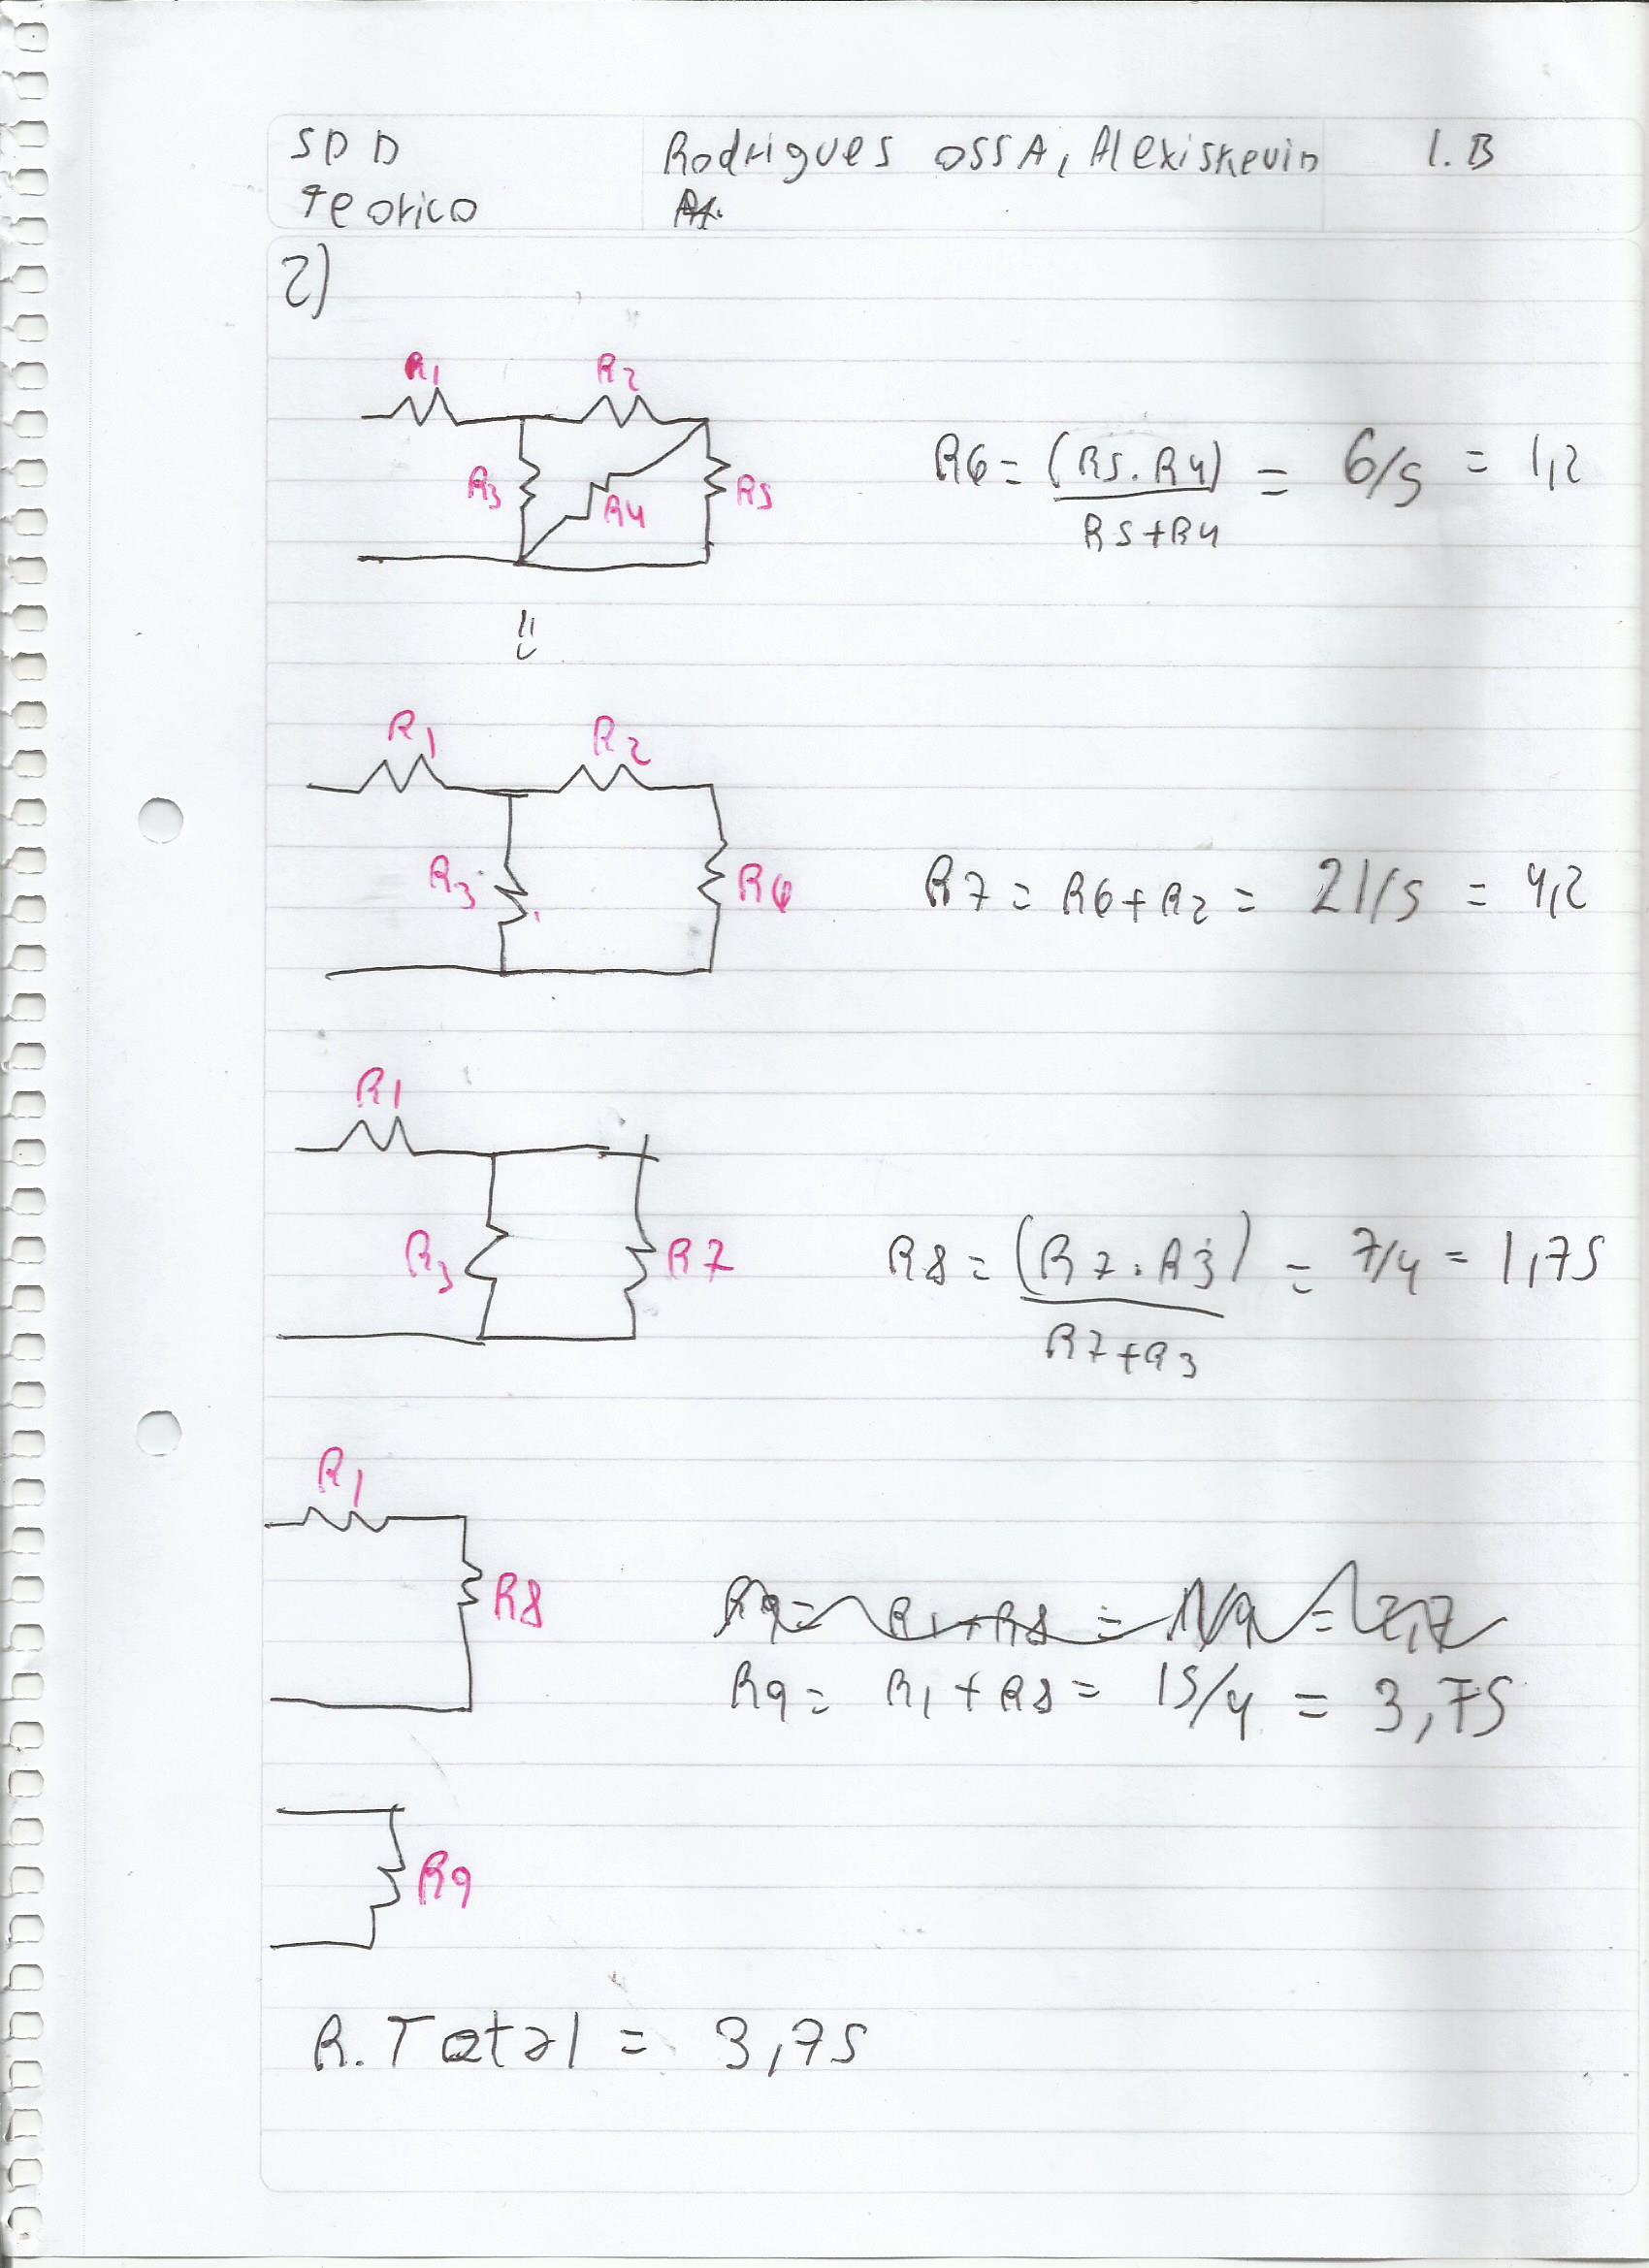 SDD Rodrigues OSSA, Alexiskevin 1.B
Teorico
2)
R1 R2
R3 R4 R5
R6 = (R5.R4) / R5+R4 = 6/5 = 1,2
R1 R2
R3 R6
R7 = R6+R2 = 21/5 = 4,2
R1
R3 R7
R8 = (R7.R3) / R7+R3 = 7/4 = 1,75
R1
R8
R9 = R1+R8 =
R9 = R1+R8 = 15/4 = 3,75
R9
R.Total = 3,75